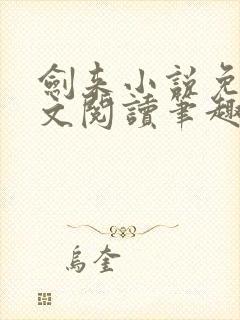 劍来小說免
文閱讀筆趣
烏奎